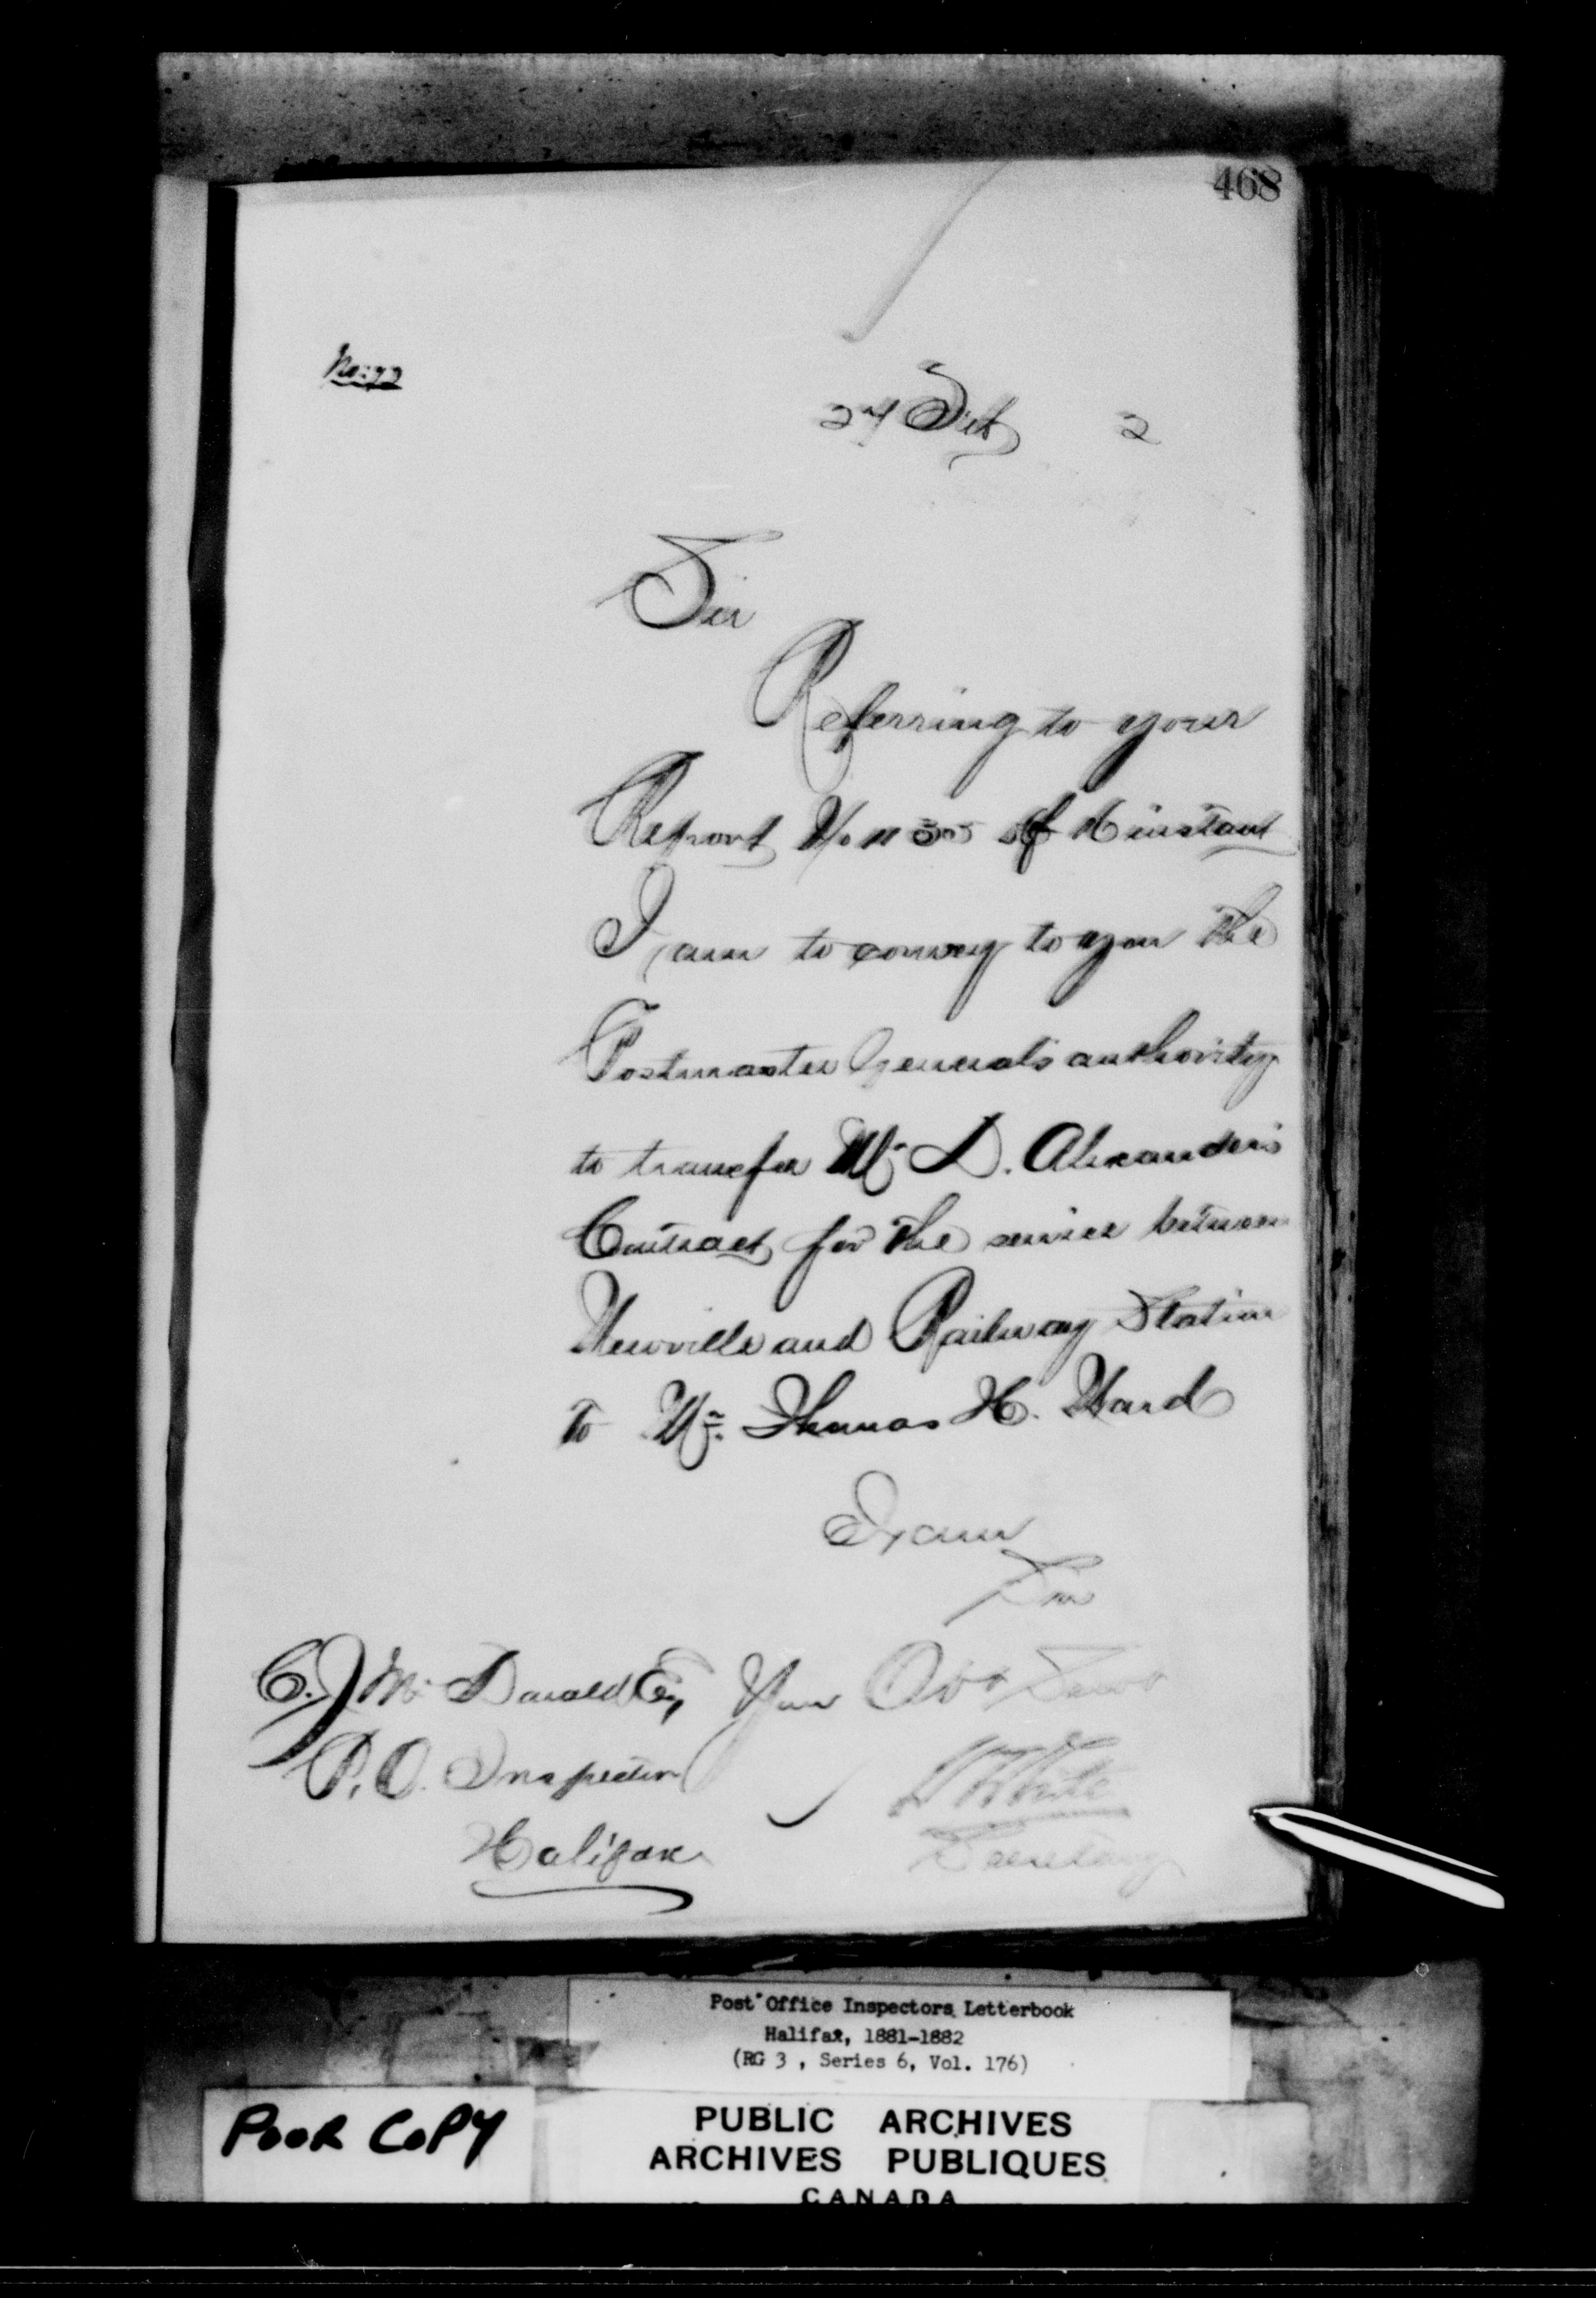 468
24 Oct 2
Sir
Referring to your
Report No of 16 instant
I am to convey to you the
Postmaster General's authority
to transfer Mr D. Alexander's
Contract for the service between
Newville and Railway Station
to Mr. Thomas H. Ward
I am
Sir
C. J McDonald Esq Your Obt Servt
P. O. Inspector W White
Halifax Secretary
Post Office Inspectors Letterbook
Halifax, 1881-1882
(RG 3 , Series 6, Vol. 176)
POOR COPY
PUBLIC ARCHIVES
ARCHIVES PUBLIQUES
CANADA